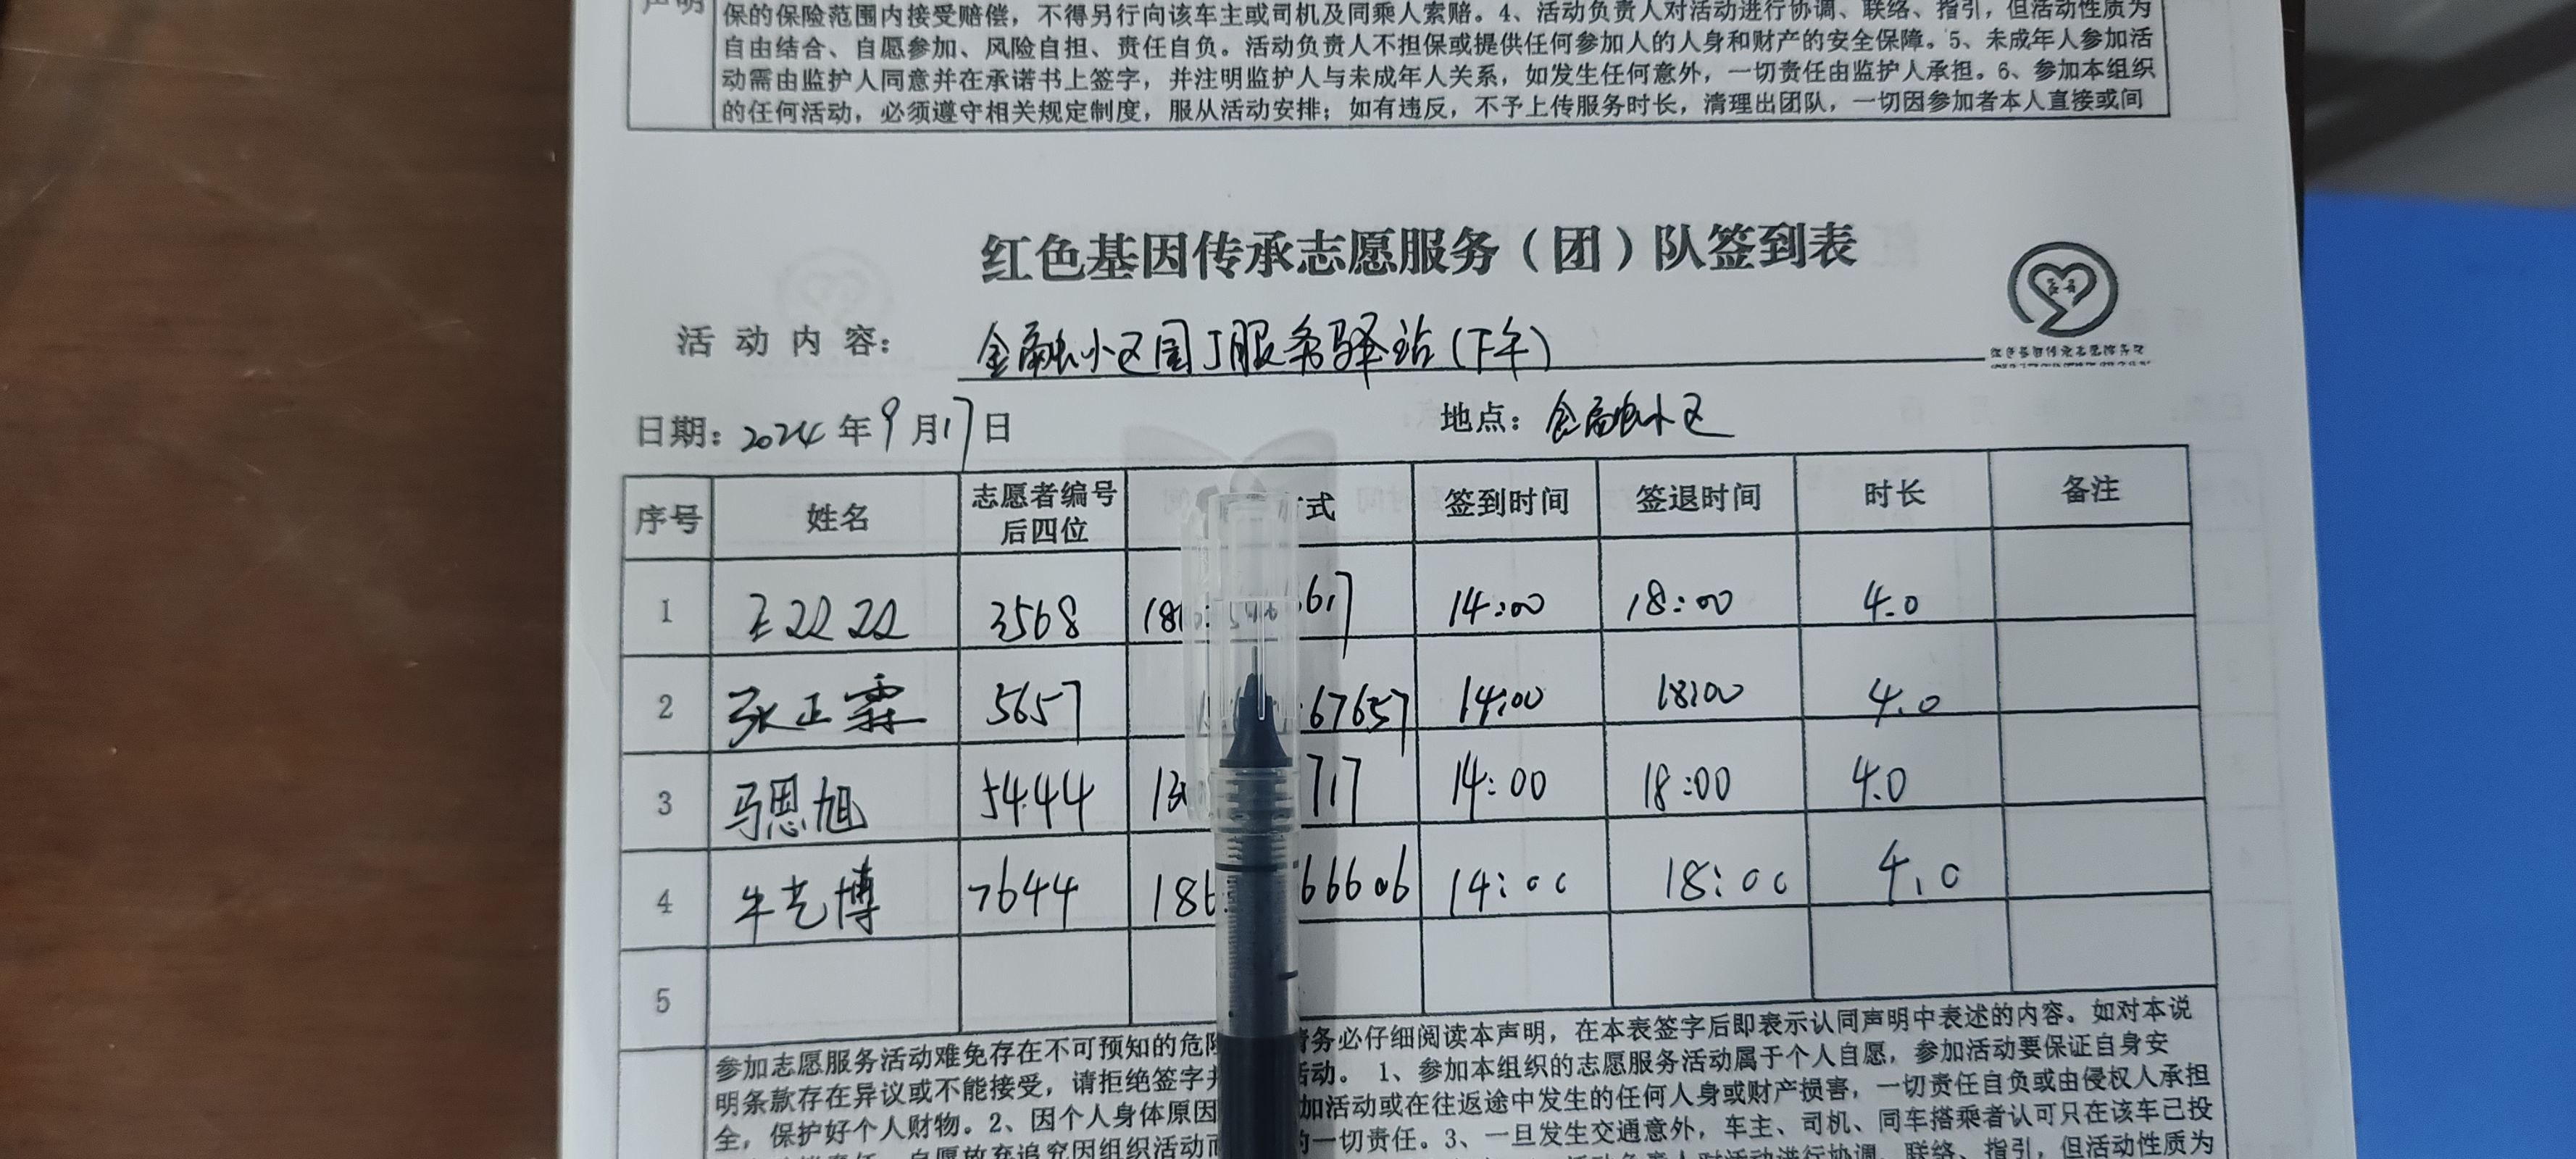 声明
保的保险范围内接受赔偿，不得另行向该车主或司机及同乘人索赔。4、活动负责人对活动进行协调、联络、指引，但活动性质为
自由结合、自愿参加、风险自担、责任自负。活动负责人不担保或提供任何参加人的人身和财产的安全保障。5、未成年人参加活
动需由监护人同意并在承诺书上签字，并注明监护人与未成年人关系，如发生任何意外，一切责任由监护人承担。6、参加本组织
的任何活动，必须遵守相关规定制度，服从活动安排；如有违反，不予上传服务时长，清理出团队，一切因参加者本人直接或间
红色基因传承志愿服务（团）队签到表
活动内容： 金融小区园丁服务驿站(下午)
日期：2024年9月17日 地点：金融小区
序号 姓名 志愿者编号后四位 式 签到时间 签退时间 时长 备注
1 3568 14:00 18:00 4.0
2 张正霖 5657 67657 14:00 18:00 4.0
3 马恩旭 5444 717 14:00 18:00 4.0
4 牛艺博 7644 186 66606 14:00 18:00 4.0
5
参加志愿服务活动难免存在不可预知的危险 请务必仔细阅读本声明，在本表签字后即表示认同声明中表述的内容。如对本说
明条款存在异议或不能接受，请拒绝签字并 活动。 1、参加本组织的志愿服务活动属于个人自愿，参加活动要保证自身安
全，保护好个人财物。2、因个人身体原因 加活动或在往返途中发生的任何人身或财产损害，一切责任自负或由侵权人承担
自愿放弃追究因组织活动而 的一切责任。3、一旦发生交通意外，车主、司机、同车搭乘者认可只在该车已投
活动负责人对活动进行协调、联络、指引，但活动性质为